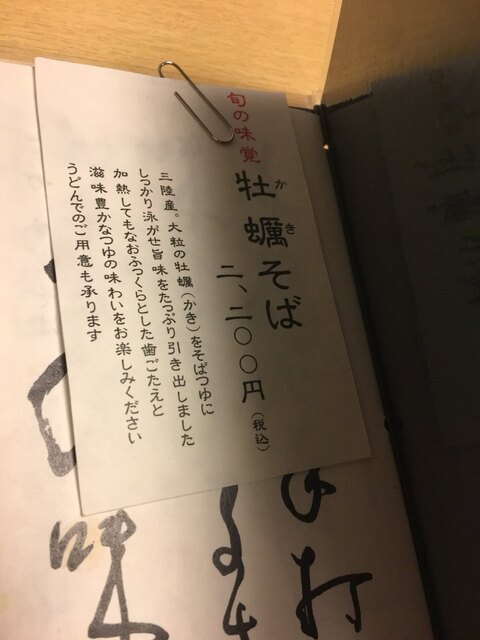 旬の味覚
牡蠣そば
かき
二、二〇〇円(税込)
三陸産。大粒の牡蠣(かき)をそばつゆに
しっかり泳がせ旨味をたっぷり引き出しました
加熱してもなおふっくらとした歯ごたえと
滋味豊かなつゆの味わいをお楽しみください
うどんでのご用意も承ります
打
味